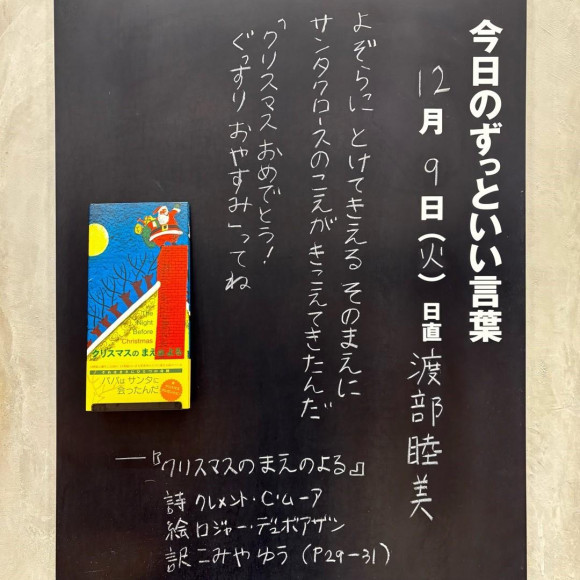 今日のずっといい言葉
12月9日(火) 日直 渡部睦美
よぞらに とけてきえる そのまえに
サンタクロースのこえが きこえてきたんだ
「クリスマス おめでとう!
ぐっすり おやすみ」ってね
The
Night
Before
Christmas
クリスマスの まえのよる
パパは サンタに
会ったんだ
―『クリスマスのまえのよる』
詩 クレメント・C・ムーア
絵 ロジャー・デュボアザン
訳 こみやゆう (P29-31)